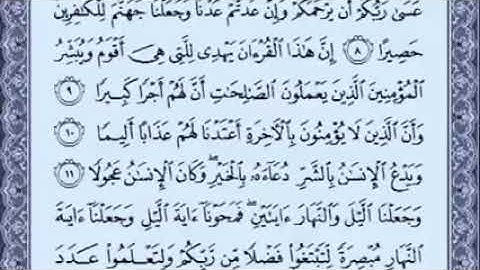 عَسَىٰ رَبُّكُمْ أَن يَرْحَمَكُمْ وَإِنْ عُدتُّمْ عُدْنَا وَجَعَلْنَا جَهَنَّمَ لِلْكَٰفِرِينَ
حَصِيرًا ٨ إِنَّ هَٰذَا ٱلْقُرْءَانَ يَهْدِى لِلَّتِى هِىَ أَقْوَمُ وَيُبَشِّرُ
ٱلْمُؤْمِنِينَ ٱلَّذِينَ يَعْمَلُونَ ٱلصَّٰلِحَٰتِ أَنَّ لَهُمْ أَجْرًا كَبِيرًا ٩
وَأَنَّ ٱلَّذِينَ لَا يُؤْمِنُونَ بِٱلْءَاخِرَةِ أَعْتَدْنَا لَهُمْ عَذَابًا أَلِيمًا ١٠
وَيَدْعُ ٱلْإِنسَٰنُ بِٱلشَّرِّ دُعَآءَهُۥ بِٱلْخَيْرِ ۖ وَكَانَ ٱلْإِنسَٰنُ عَجُولًا ١١
وَجَعَلْنَا ٱلَّيْلَ وَٱلنَّهَارَ ءَايَتَيْنِ ۖ فَمَحَوْنَآ ءَايَةَ ٱلَّيْلِ وَجَعَلْنَآ ءَايَةَ
ٱلنَّهَارِ مُبْصِرَةً لِّتَبْتَغُوا۟ فَضْلًا مِّن رَّبِّكُمْ وَلِتَعْلَمُوا۟ عَدَدَ